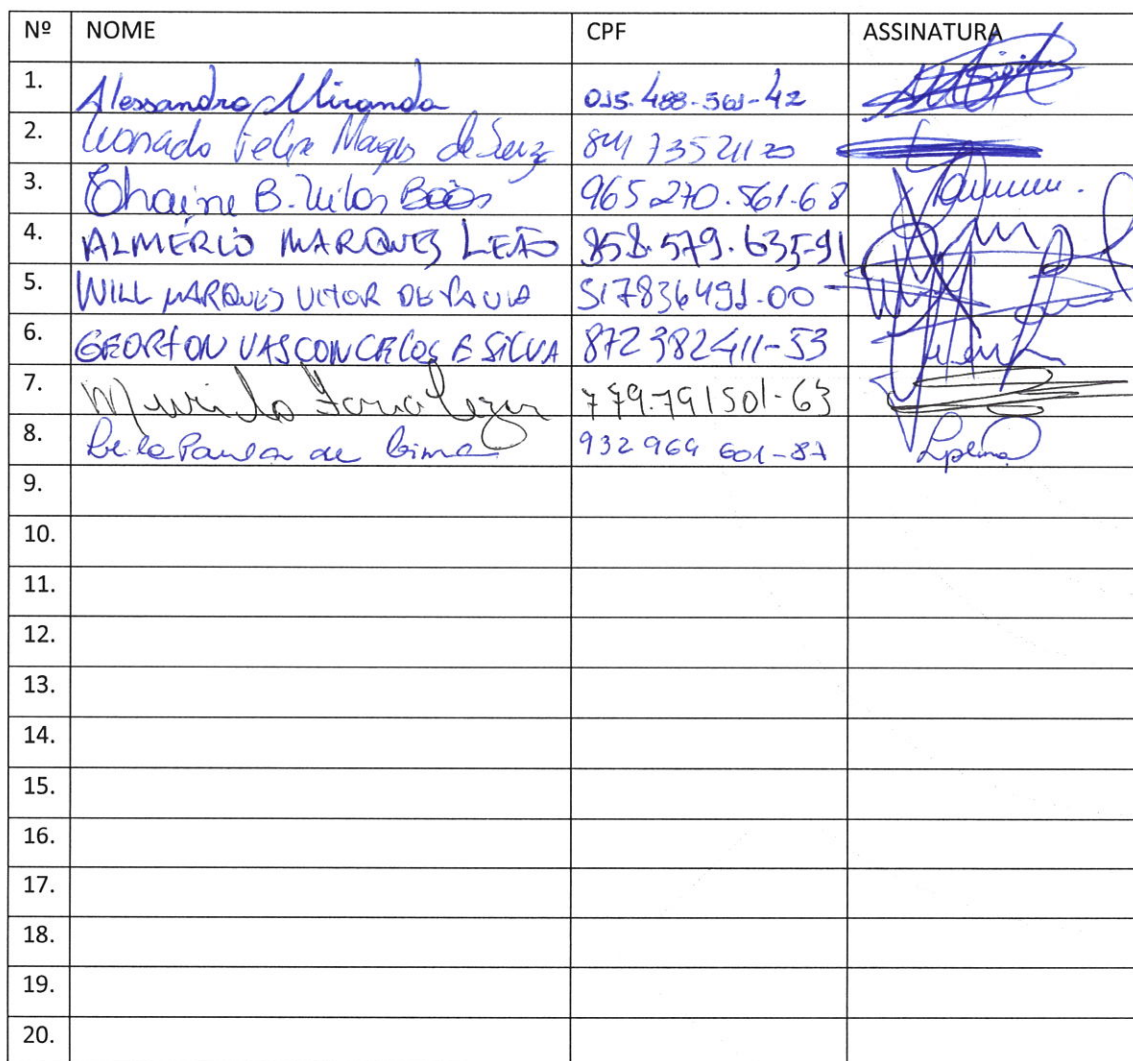 Nº NOME CPF ASSINATURA
1. Alessandro Miranda 015.488-561-42
2. Leonado Felipe Marques de Souza 841 735 211 20
3. Thaine B. Vilas Boas 965 270.561-68
4. ALMÉRIO MARQUES LEÃO 858.579.635-91
5. WILL MARQUES VITOR DE PAULA 517836491-00
6. GEORTON VASCONCELOS E SILVA 872382411-53
7. Murilo 779.791501-63
8. Paula de Lima 932 964 601-87
9.
10.
11.
12.
13.
14.
15.
16.
17.
18.
19.
20.